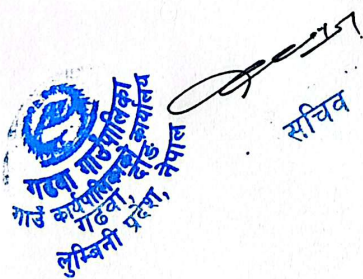 गढवा गाउँपालिका
गाउँ कार्यपालिकाको कार्यालय
गढवा, दाङ
लुम्बिनी प्रदेश, नेपाल
सचिव